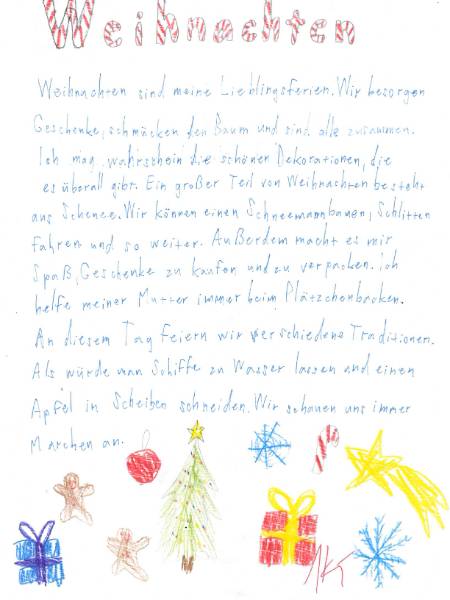 Weihnachten
Weihnachten sind meine Lieblingsferien. Wir besorgen
Geschenke, schmücken den Baum und sind alle zusammen.
Ich mag wahrschein die schöner Dekorationen, die
es überall gibt. Ein großer Teil von Weihnachten besteht
aus Schenee. Wir können einen Schneemannbauen, Schlitten
fahren und so weiter. Außerdem macht es mir
Spaß, Geschenke zu kaufen und zu verpacken. Ich
helfe meiner Mutter immer beim Plätzchenbacken.
An diesem Tag feiern wir verschiedene Traditionen.
Als würde man Schiffe zu Wasser lassen und einen
Apfel in Scheiben schneiden. Wir schauen uns immer
Marchen an.